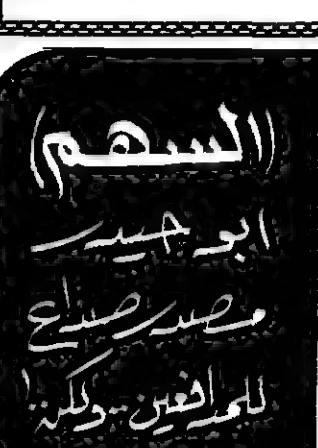 (السهم)
ابو حيدر
مصدر صداع
للمدافعين .. ولكن!